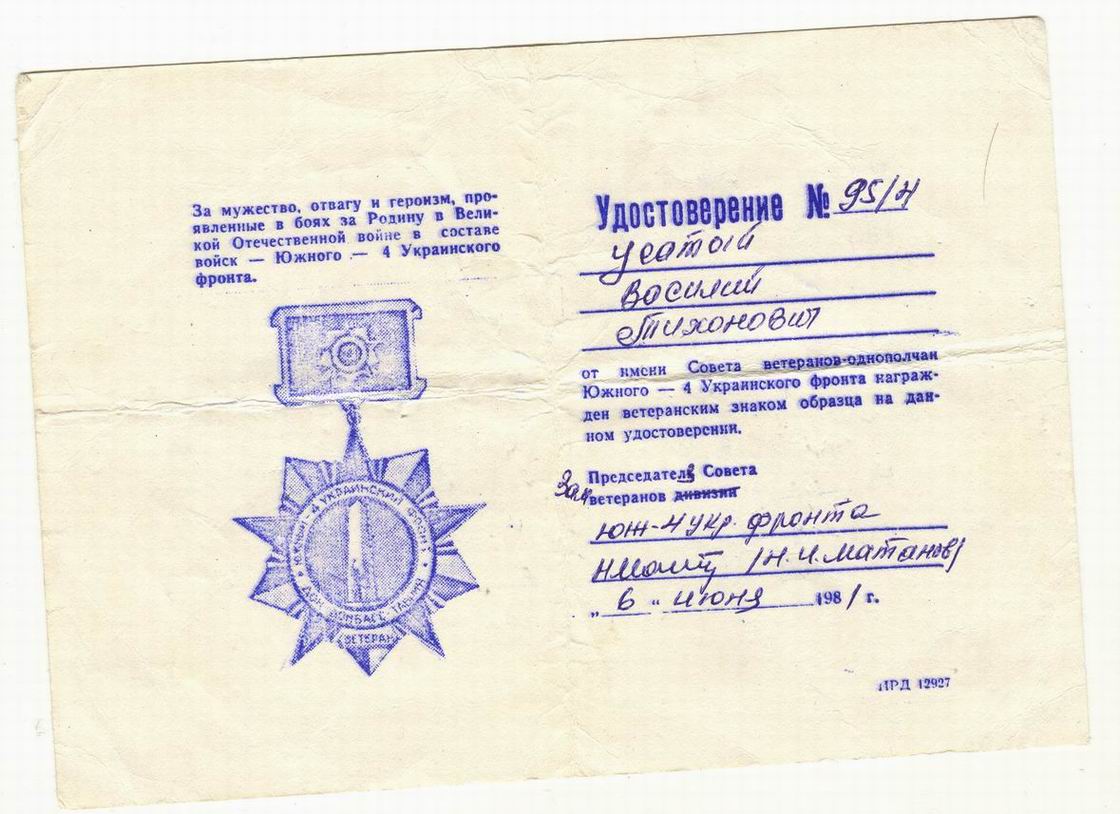 За мужество, отвагу и героизм, про-
явленные в боях за Родину в Вели-
кой Отечественной войне в составе
войск — Южного — 4 Украинского
фронта.
ЮЖНЫЙ 4 УКРАИНСКИЙ ФРОНТ
ДОН ДОНБАСС
ВЕТЕРАН
Удостоверение № 95/4
Усатый
Василий
Тихонович
от имени Совета ветеранов-однополчан
Южного — 4 Украинского фронта награж-
ден ветеранским знаком образца на дан-
ном удостоверении.
Председателя Совета
Зам ветеранов дивизии
юж-4 укр. фронта
(Н.И. Матанов)
„ 6 “ июня 1981 г.
12927